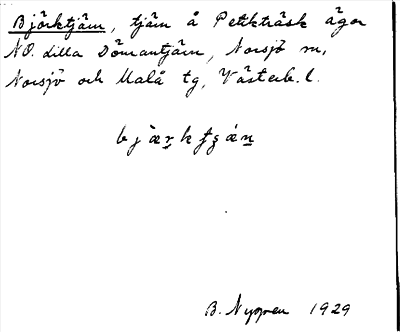 Björktjärn, tjärn å Petikträsk ägor
NO. lilla Dömantjärn, Norsjö sn,
Norsjö och Malå tg, Västerb. l.
B. Nygren 1929